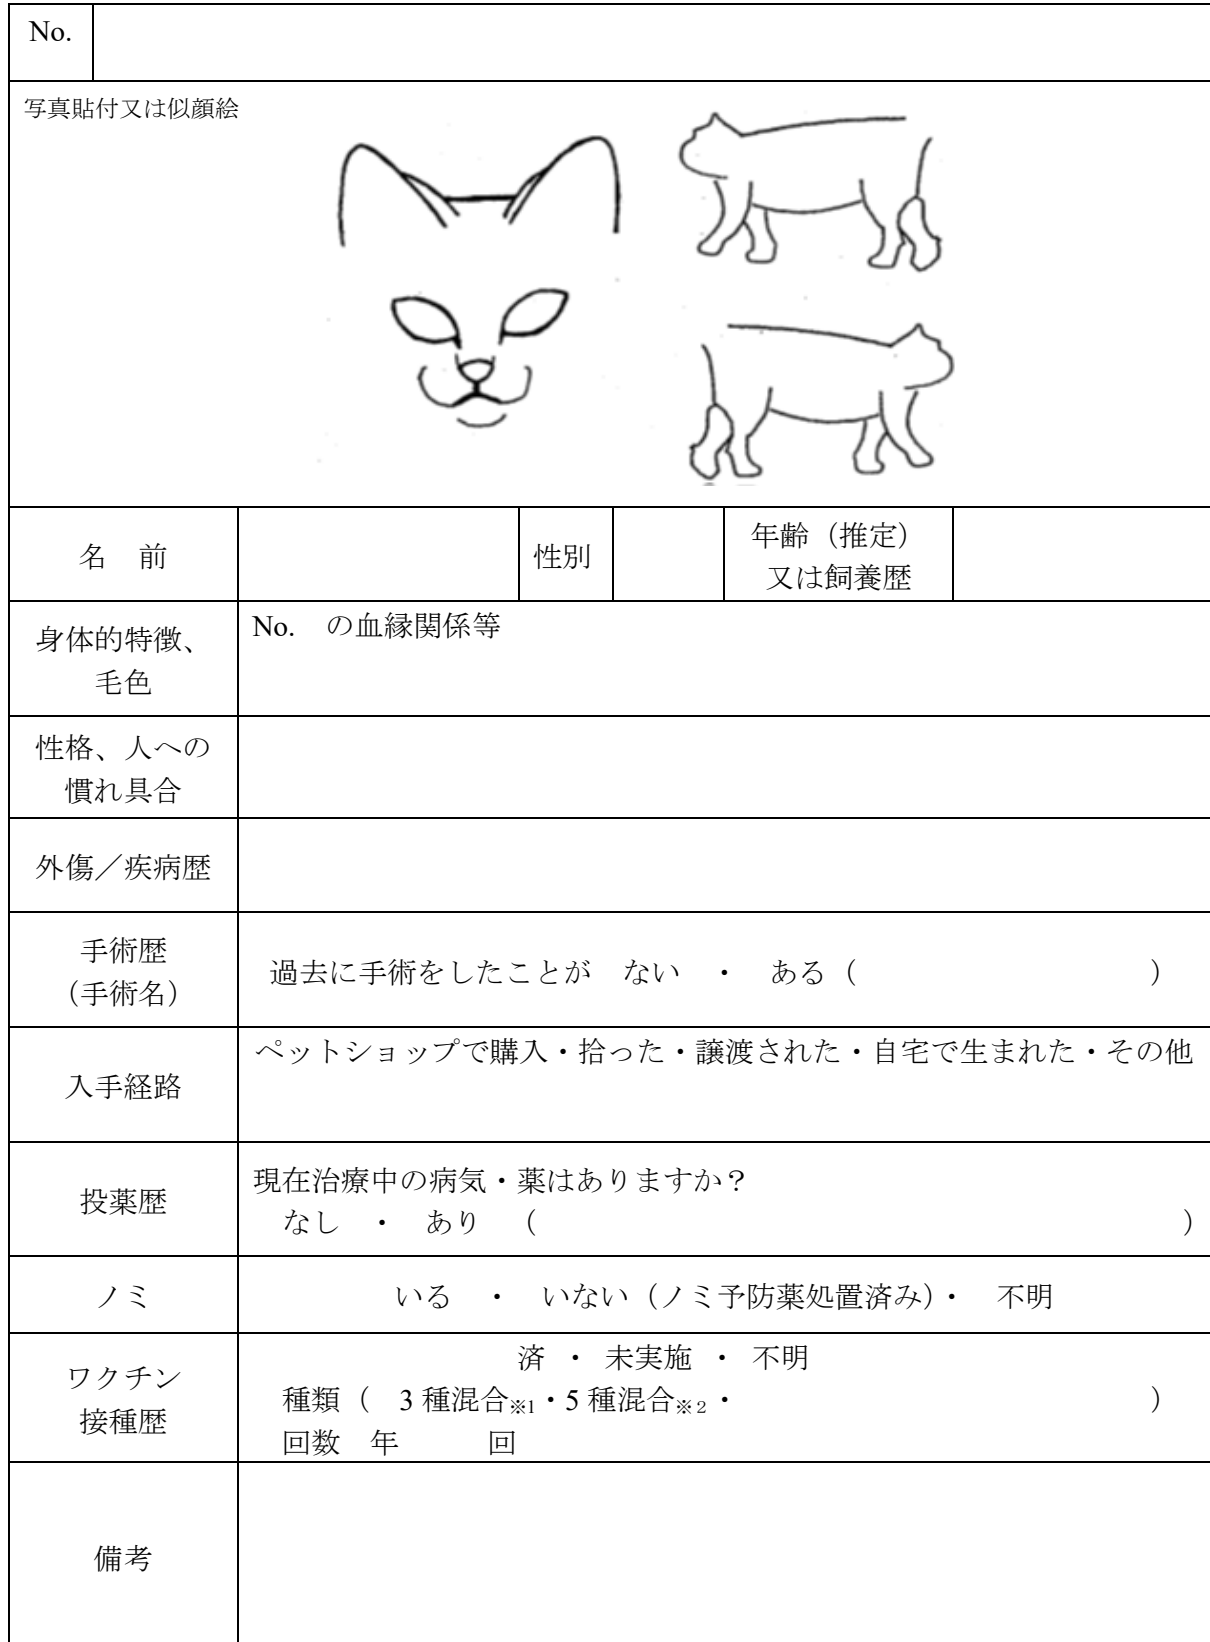 No.
写真貼付又は似顔絵
名　前
性別
年齢（推定）
又は飼養歴
身体的特徴、
毛色
No.　の血縁関係等
性格、人への
慣れ具合
外傷／疾病歴
手術歴
（手術名）
過去に手術をしたことが　ない　・　ある（　　　　　　　　　　）
入手経路
ペットショップで購入・拾った・譲渡された・自宅で生まれた・その他
投薬歴
現在治療中の病気・薬はありますか？
なし　・　あり　（　　　　　　　　　　　　　　　　　　　　　　）
ノミ
いる　・　いない（ノミ予防薬処置済み）・　不明
ワクチン
接種歴
済　・　未実施　・　不明
種類（　3 種混合※1・5 種混合※2・　　　　　　　　　　　　　　）
回数　年　　　回
備考